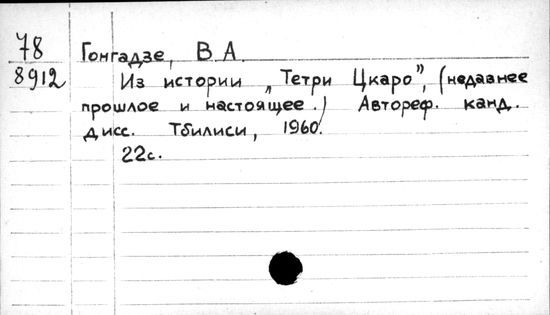 78
8912
Гонгадзе, В А.
Из истории „Тетри Цкаро", (недавнее
прошлое и настоящее.) Автореф. канд.
дисс. Тбилиси, 1960.
22с.